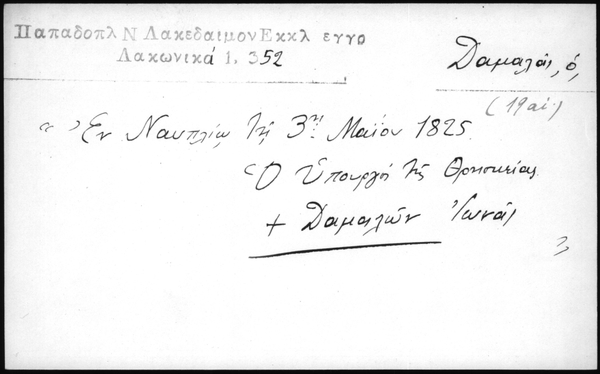 Παπαδοπλ Ν Λακεδαιμον Εκκλ εγγρ
Λακωνικά 1. 352
Δαμαλᾶς, ὁ,
(19 αἰ.)
« Ἐν Ναυπλίῳ τῇ 3ῃ Μαΐου 1825
Ὁ Ὑπουργὸς τῆς Θρησκείας
+ Δαμαλῶν Ἰωνᾶς
»